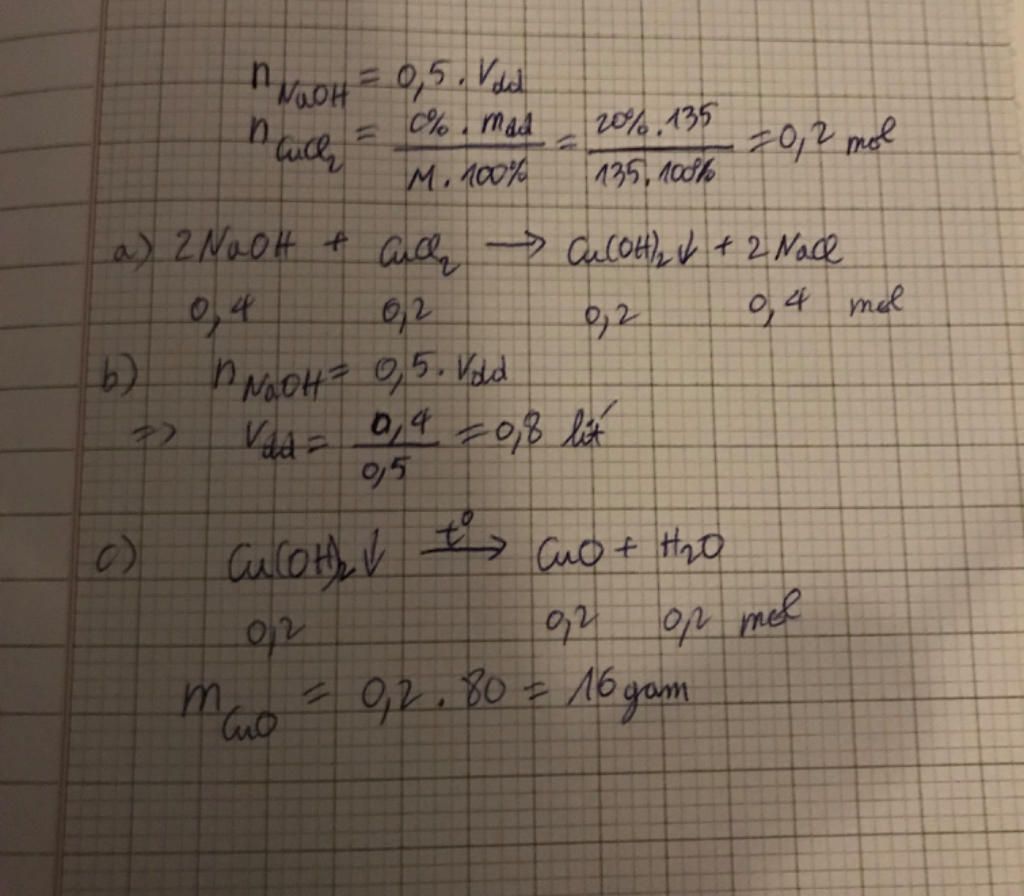 n_NaOH = 0,5 . Vdd
n_CuCl₂ = C% . mdd / M . 100% = 20% . 135 / 135 . 100% = 0,2 mol
a) 2NaOH + CuCl₂ → Cu(OH)₂↓ + 2NaCl
0,4 0,2 0,2 0,4 mol
b) n_NaOH = 0,5 . Vdd
=> Vdd = 0,4 / 0,5 = 0,8 lít
c) Cu(OH)₂↓ →(t°) CuO + H₂O
0,2 0,2 0,2 mol
m_CuO = 0,2 . 80 = 16 gam